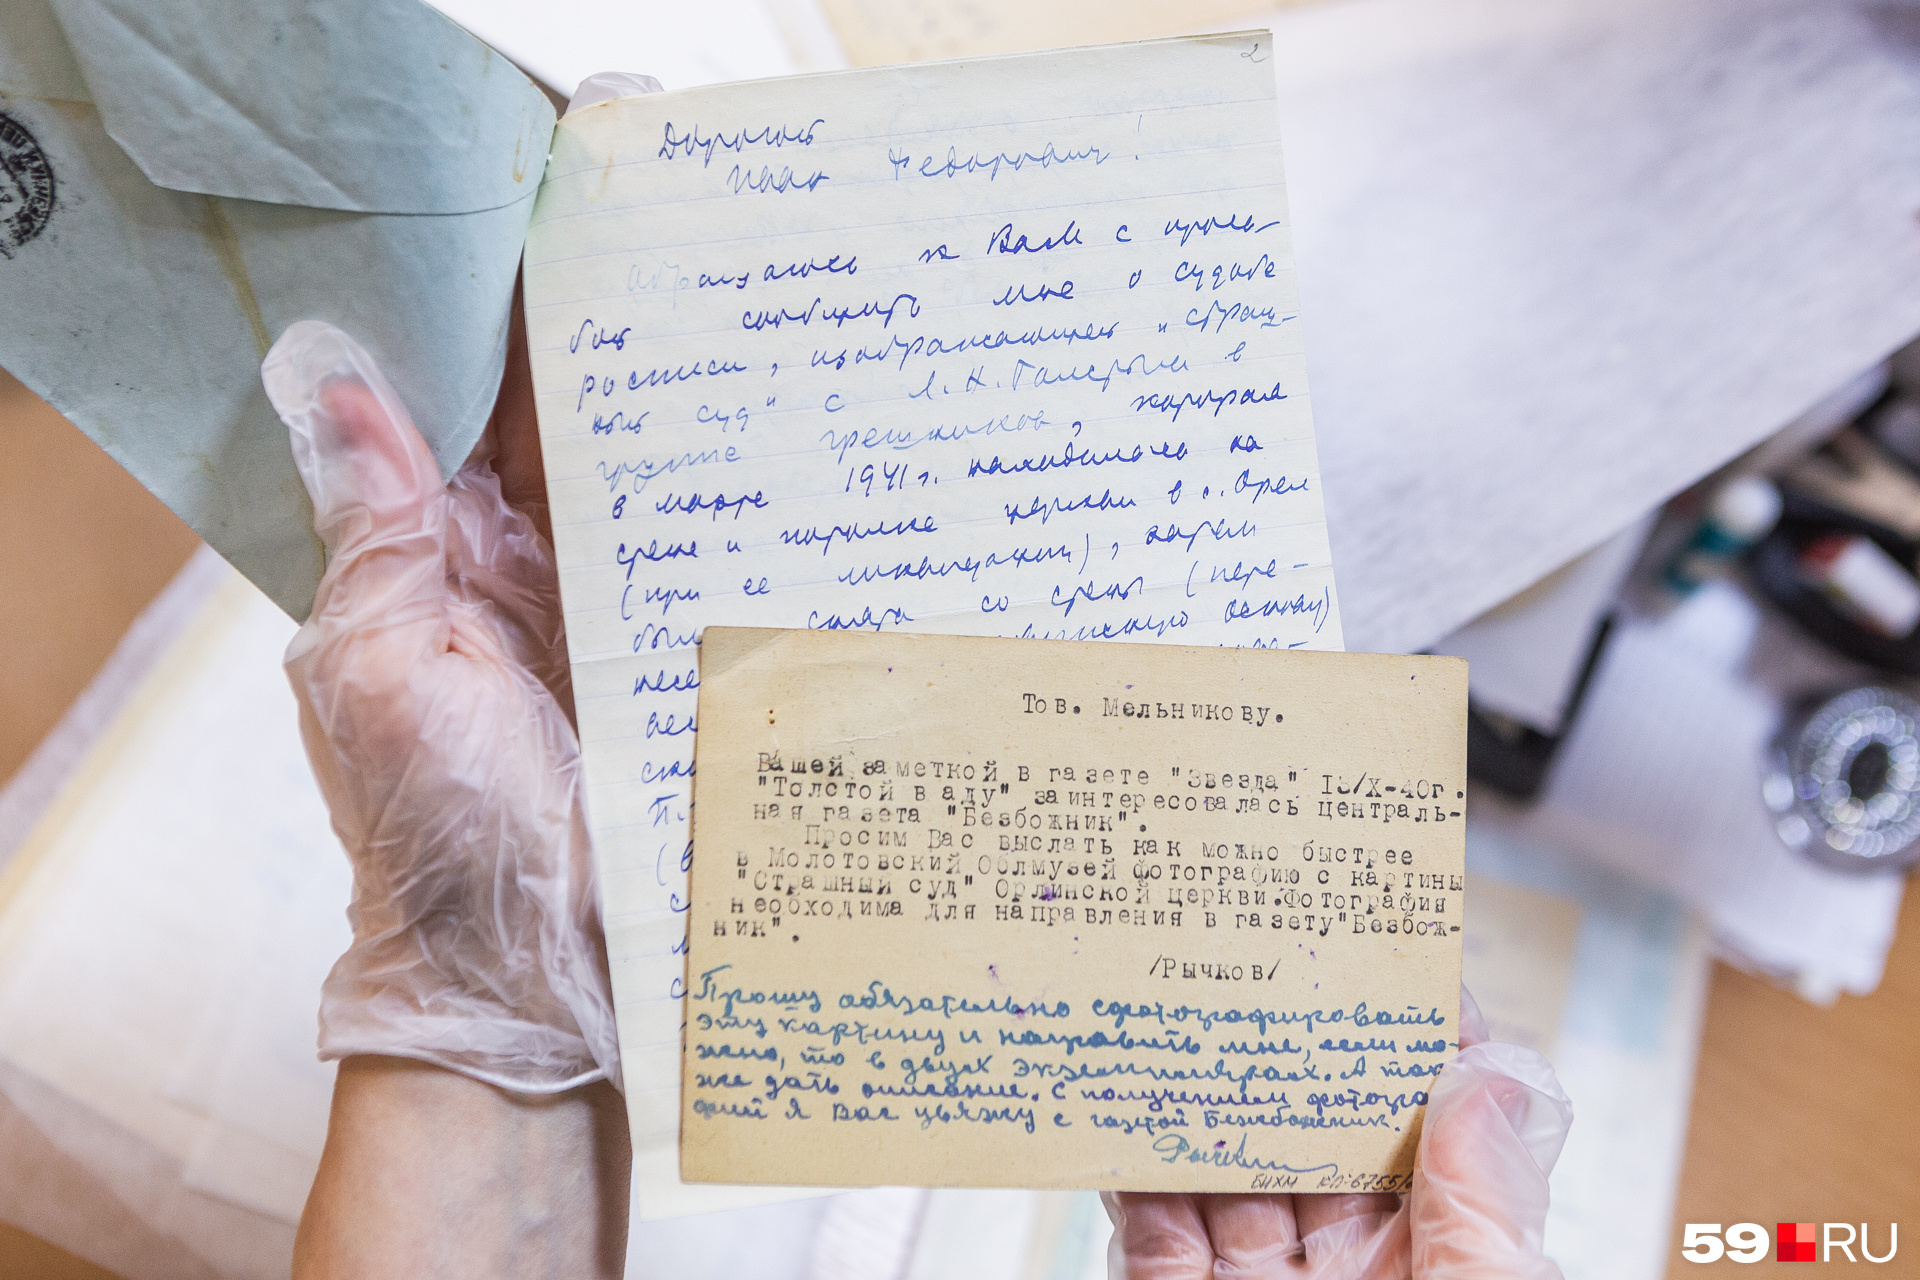 2
Дорогой
Иван Федорович!
Обращаюсь к Вам с прось-
бой сообщить мне о судьбе
росписи, изображающей "Страш-
ный суд" с Л. Н. Толстым в
группе грешников, которая
в марте 1941 г. находилась на
стене и потолке церкви в с. Орел
(при ее ликвидации), затем
была снята со стены (пере-
несе
Тов. Мельникову.
Вашей заметкой в газете "Звезда" 13/X-40г.
"Толстой в аду" заинтересовалась централь-
ная газета "Безбожник".
Просим Вас выслать как можно быстрее
в Молотовский Облмузей фотографию с картины
"Страшный суд" Орлинской церкви.Фотография
необходима для направления в газету"Безбож-
ник".
/Рычков/
Прошу обязательно сфотографировать
эту картину и направить мне, если мо-
жно, то в двух экземплярах. А так
же дать описание. С получением фотогра
фий я Вас увяжу с газетой Безбожник.
Рычков
БИХМ КП-6755/
59 RU